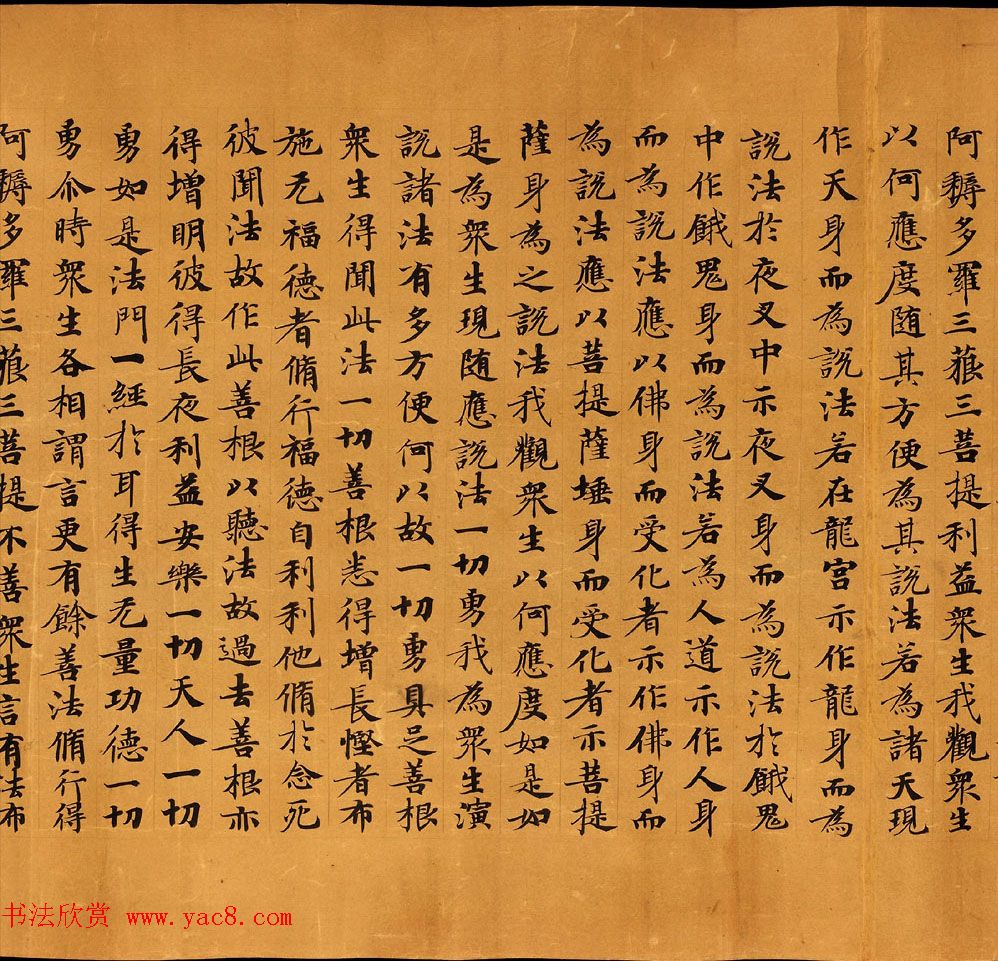 阿耨多羅三藐三菩提利益衆生我觀衆生
以何應度随其方便為其說法若為諸天現
作天身而為說法若在龍宫示作龍身而為
說法於夜叉中示夜叉身而為說法於餓鬼
中作餓鬼身而為說法若為人道示作人身
而為說法應以佛身而受化者示作佛身而
為說法應以菩提薩埵身而受化者示菩提
薩身為之說法我觀衆生以何應度如是如
是為衆生現随應說法一切勇我為衆生演
說諸法有多方便何以故一切勇具足善根
衆生得聞此法一切善根悉得增長慳者布
施无福德者脩行福德自利利他脩於念死
彼聞法故作此善根以聽法故過去善根亦
得增明彼得長夜利益安樂一切天人一切
勇如是法門一經於耳得生无量功德一切
勇尒時衆生各相謂言更有餘善法脩行得
阿耨多羅三藐三菩提不善衆生言有法布
书法欣赏 www.yac8.com